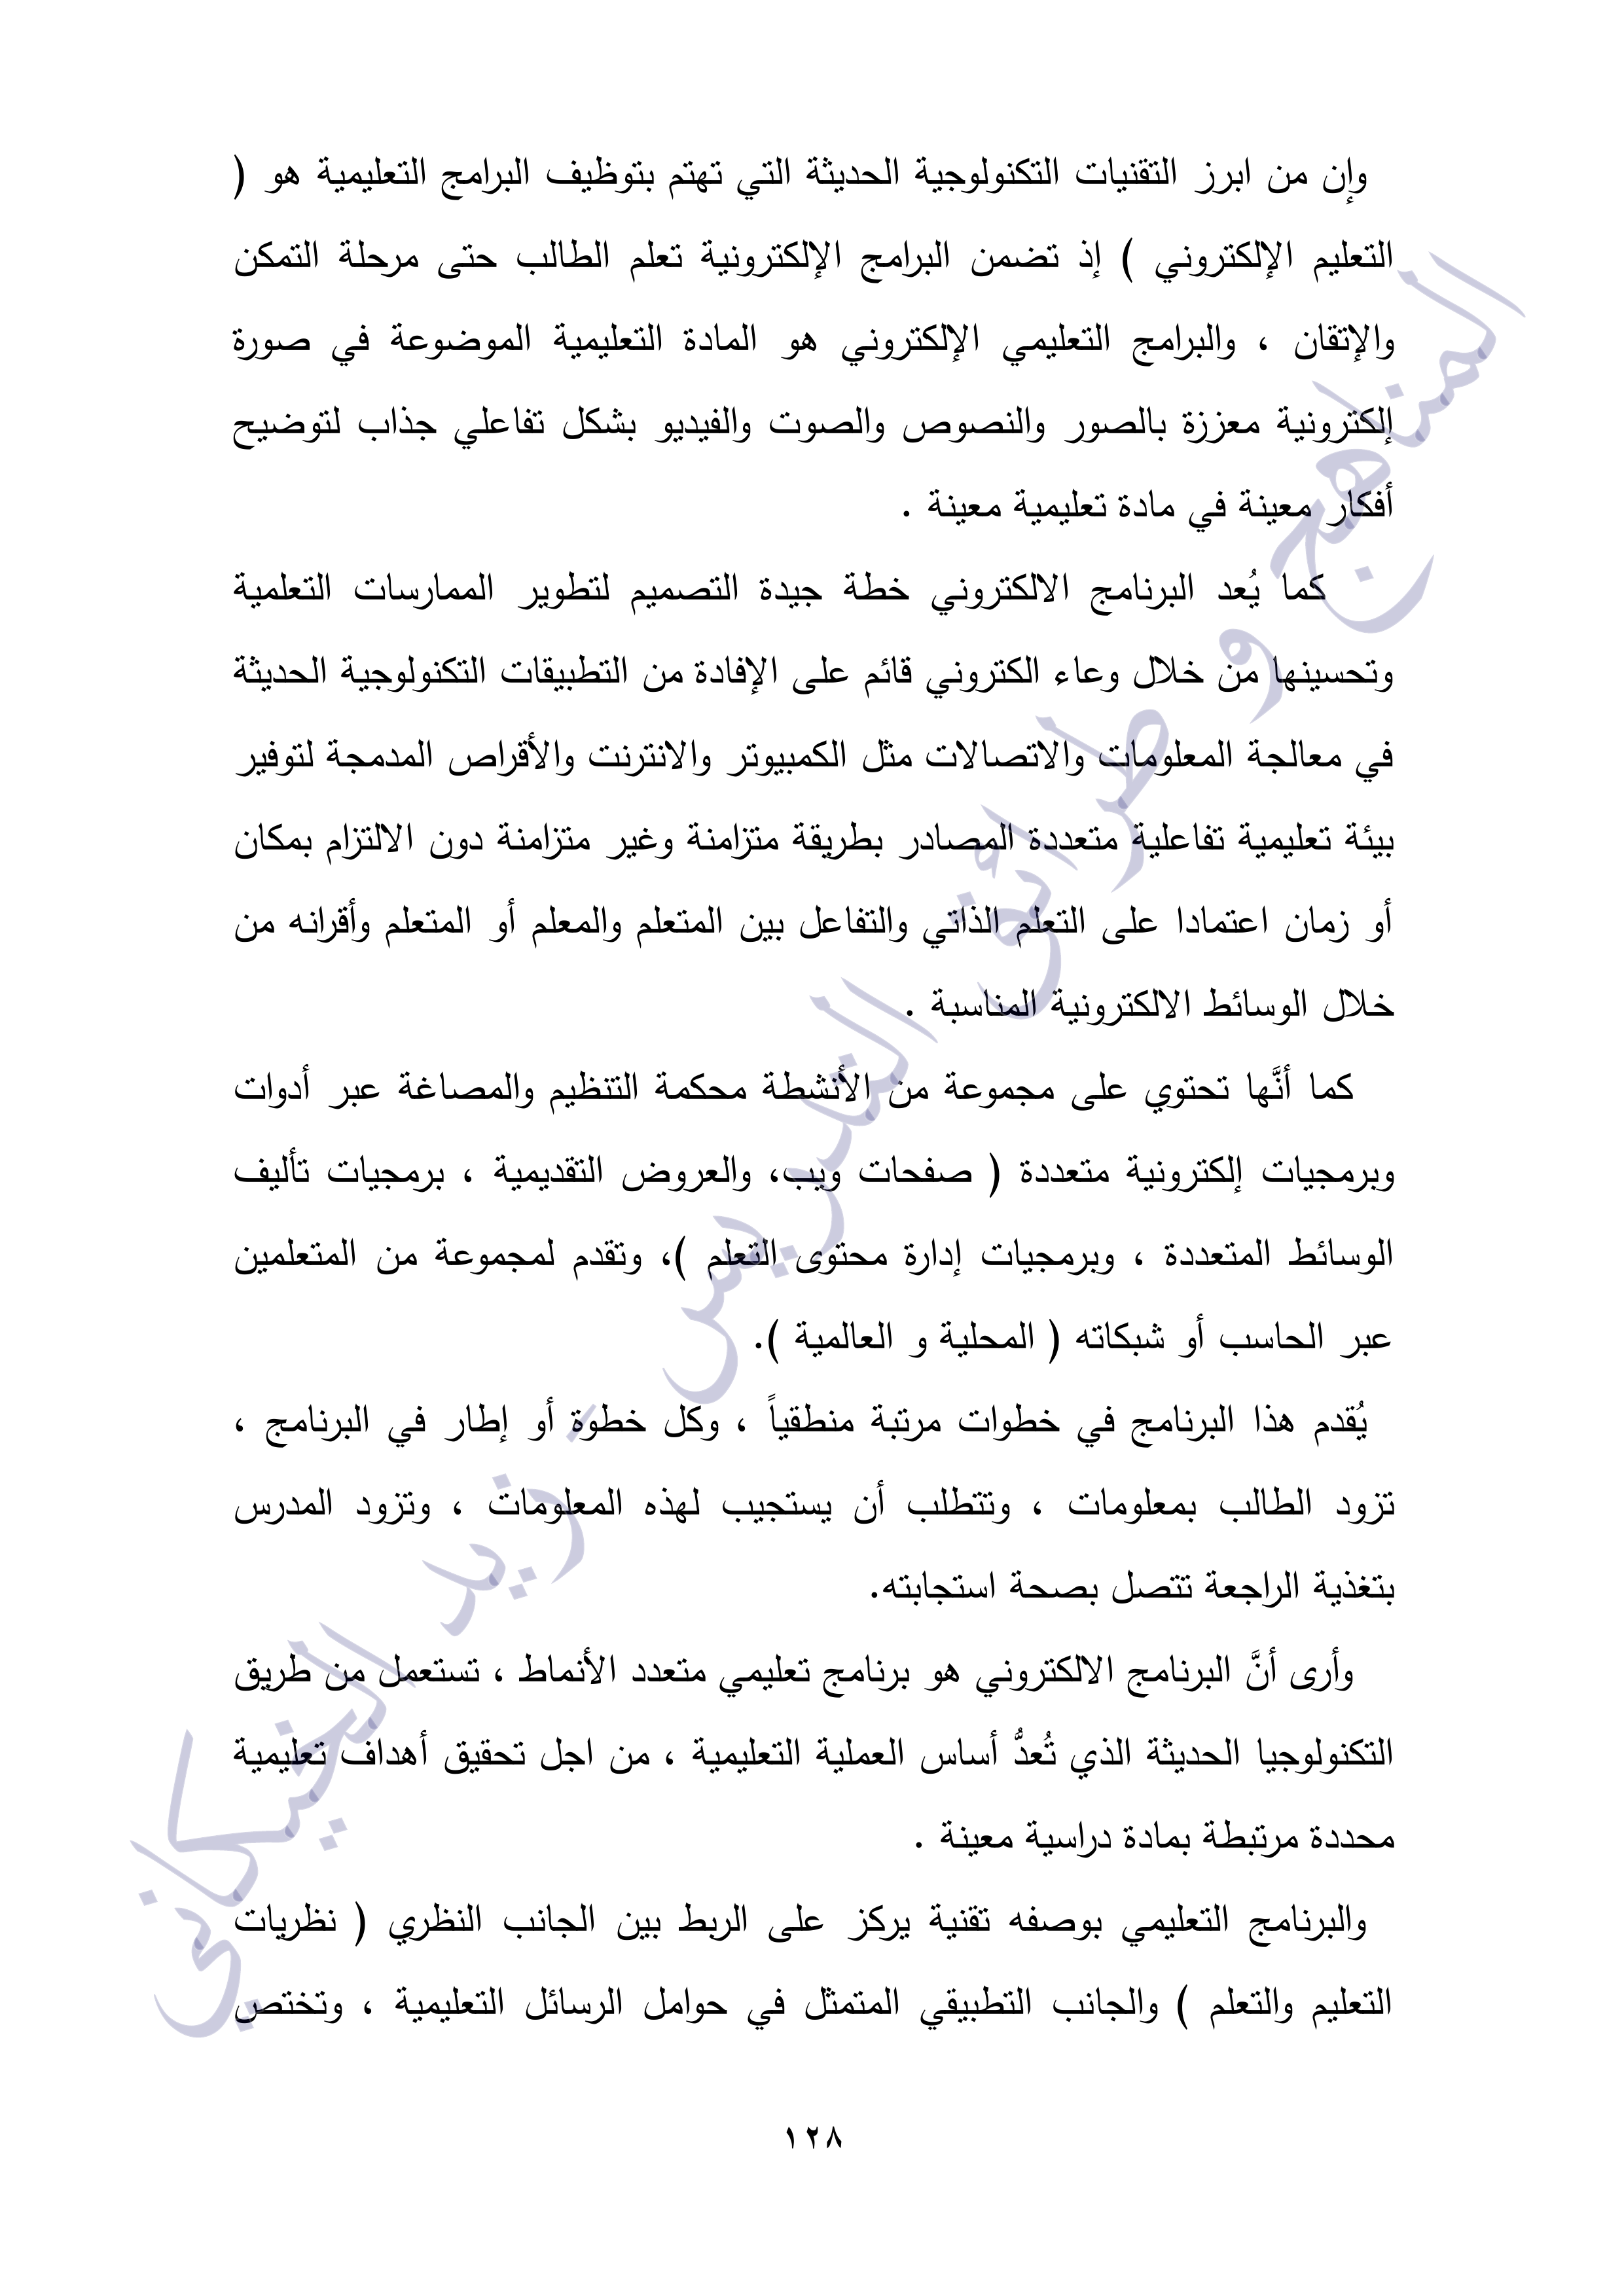 وإن من ابرز التقنيات التكنولوجية الحديثة التي تهتم بتوظيف البرامج التعليمية هو (
التعليم الإلكتروني ) إذ تضمن البرامج الإلكترونية تعلم الطالب حتى مرحلة التمكن
والإتقان ، والبرامج التعليمي الإلكتروني هو المادة التعليمية الموضوعة في صورة
إلكترونية معززة بالصور والنصوص والصوت والفيديو بشكل تفاعلي جذاب لتوضيح
أفكار معينة في مادة تعليمية معينة .
كما يُعد البرنامج الالكتروني خطة جيدة التصميم لتطوير الممارسات التعلمية
وتحسينها من خلال وعاء الكتروني قائم على الإفادة من التطبيقات التكنولوجية الحديثة
في معالجة المعلومات والاتصالات مثل الكمبيوتر والانترنت والأقراص المدمجة لتوفير
بيئة تعليمية تفاعلية متعددة المصادر بطريقة متزامنة وغير متزامنة دون الالتزام بمكان
أو زمان اعتمادا على التعلم الذاتي والتفاعل بين المتعلم والمعلم أو المتعلم وأقرانه من
خلال الوسائط الالكترونية المناسبة .
كما أنَّها تحتوي على مجموعة من الأنشطة محكمة التنظيم والمصاغة عبر أدوات
وبرمجيات إلكترونية متعددة ( صفحات ويب، والعروض التقديمية ، برمجيات تأليف
الوسائط المتعددة ، وبرمجيات إدارة محتوى التعلم )، وتقدم لمجموعة من المتعلمين
عبر الحاسب أو شبكاته ( المحلية و العالمية ).
يُقدم هذا البرنامج في خطوات مرتبة منطقياً ، وكل خطوة أو إطار في البرنامج ،
تزود الطالب بمعلومات ، وتتطلب أن يستجيب لهذه المعلومات ، وتزود المدرس
بتغذية الراجعة تتصل بصحة استجابته.
وأرى أنَّ البرنامج الالكتروني هو برنامج تعليمي متعدد الأنماط ، تستعمل من طريق
التكنولوجيا الحديثة الذي تُعدُّ أساس العملية التعليمية ، من اجل تحقيق أهداف تعليمية
محددة مرتبطة بمادة دراسية معينة .
والبرنامج التعليمي بوصفه تقنية يركز على الربط بين الجانب النظري ( نظريات
التعليم والتعلم ) والجانب التطبيقي المتمثل في حوامل الرسائل التعليمية ، وتختص
١٢٨
المناهج و طرائق التدريس - زيد الخيكاني